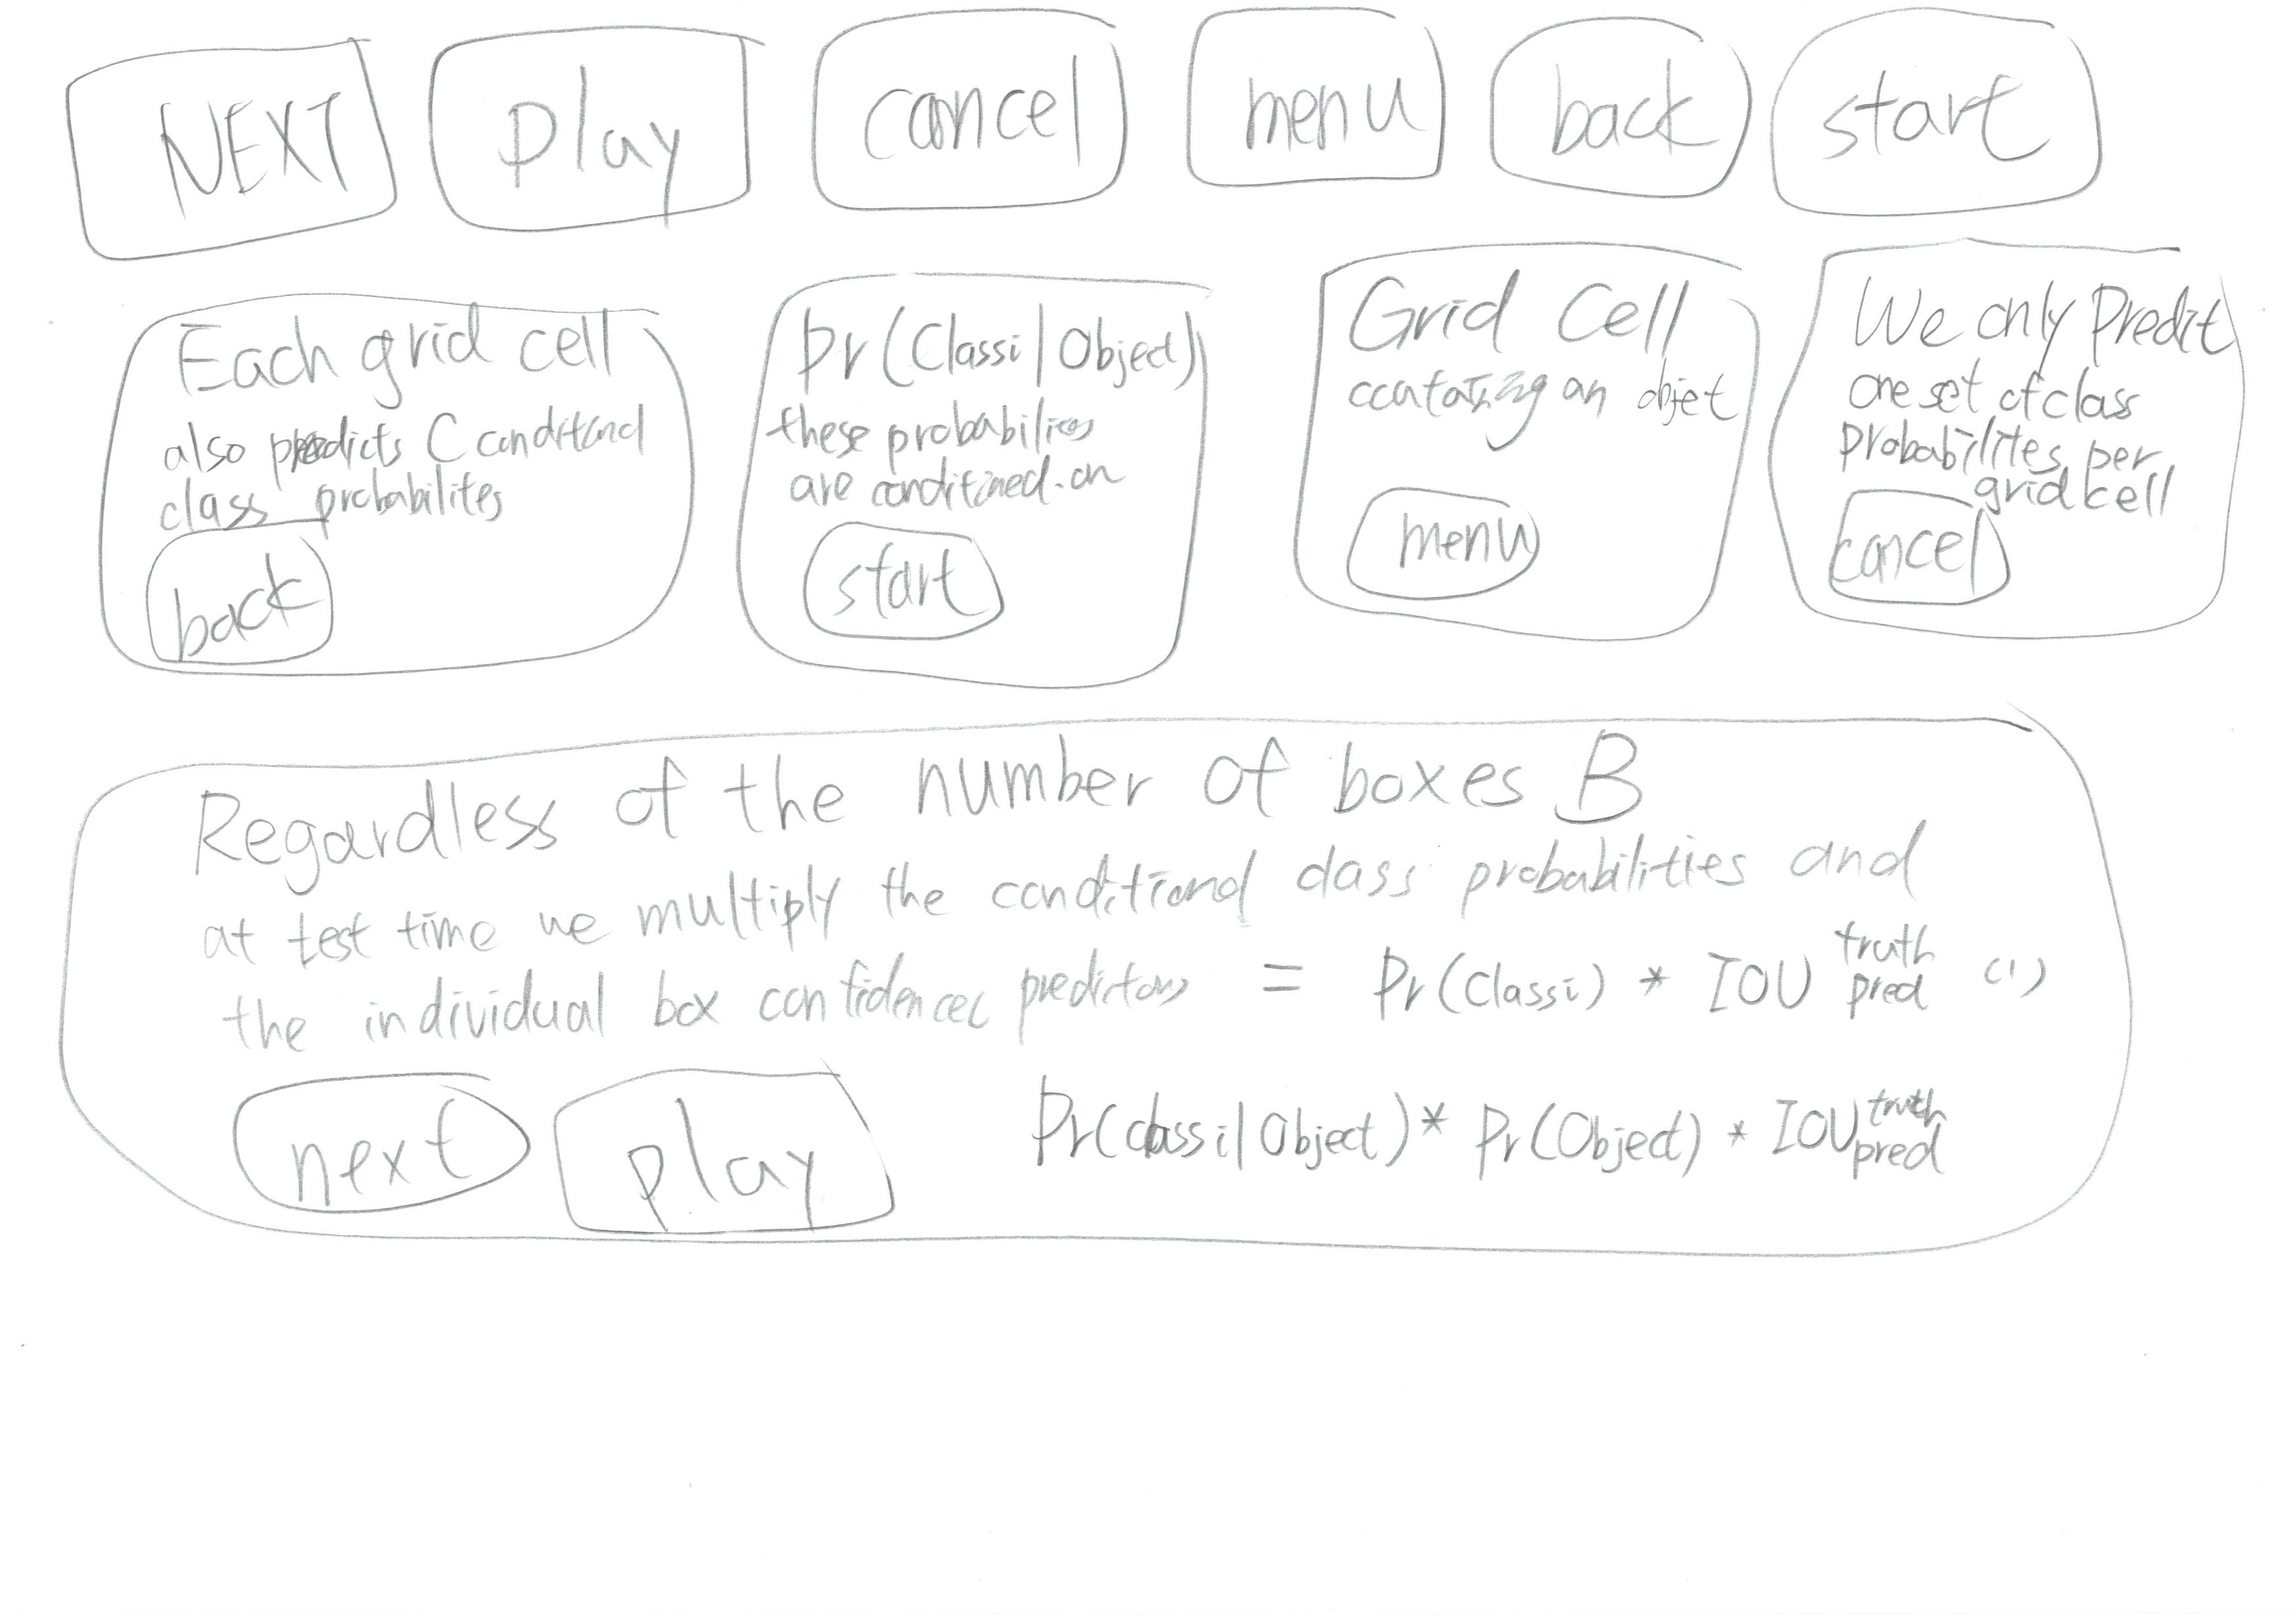 NEXT
play
cancel
menu
back
start
Each grid cell
also predicts C conditional
class probabilites
back
Pr(Classi|Object)
these probabilities
are conditioned on
start
Grid Cell
containing an objet
menu
We only Predit
one set of class
probabilites per
grid cell
cancel
Regardless of the number of boxes B
at test time we multiply the conditional class probabilities and
the individual box confidences predictions = Pr(Classi) * IOU truth pred (1)
next
play
Pr(classi|Object) * Pr(Object) * IOU truth pred